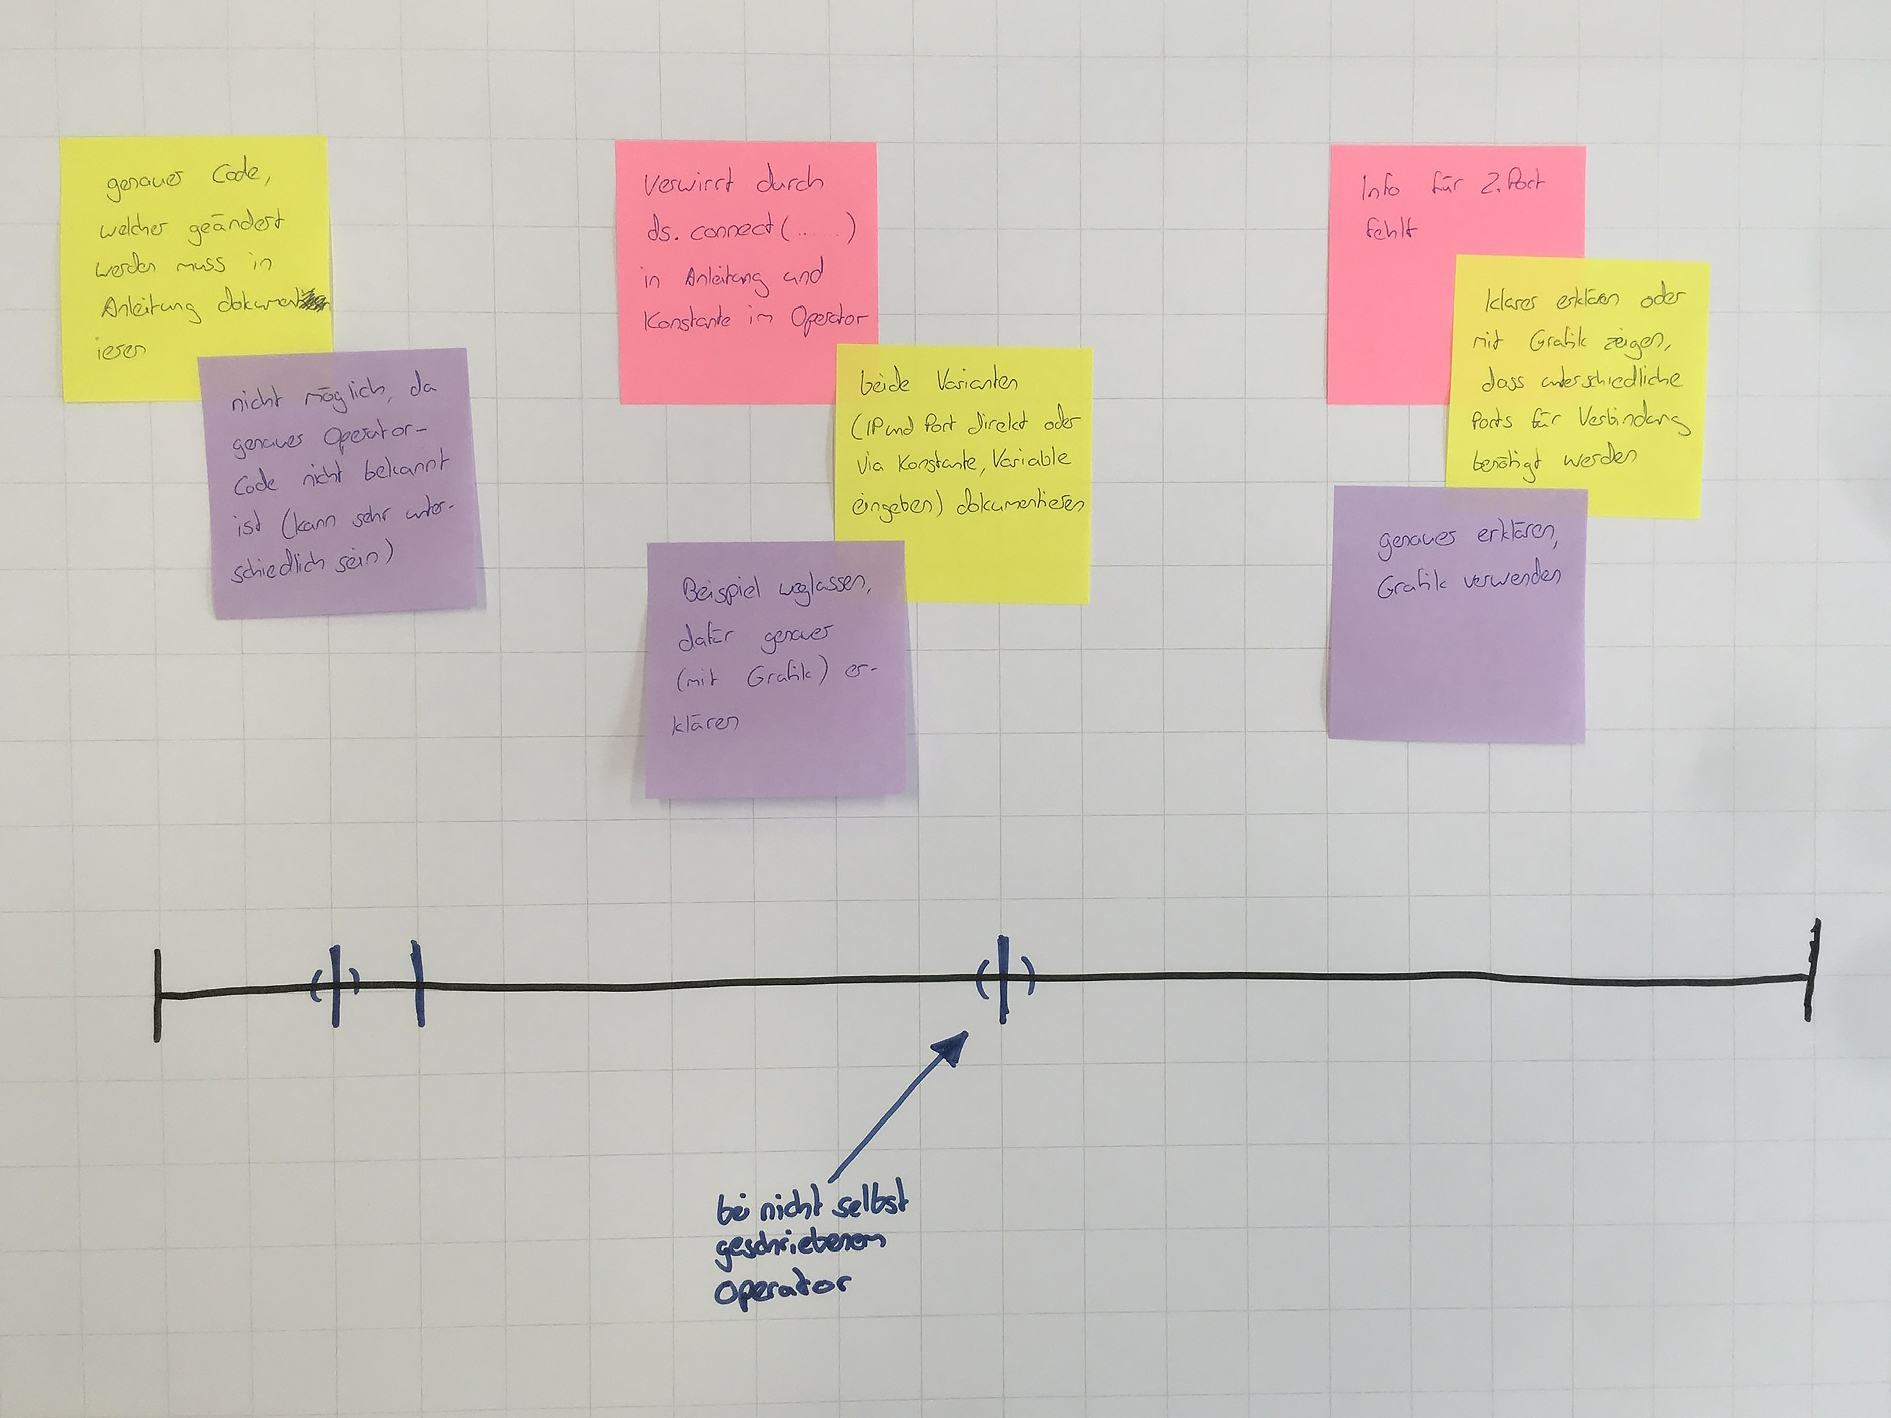 genauer Code,
welcher geändert
werden muss in
Anleitung dokument
ieren
nicht möglich, da
genauer Operator-
Code nicht bekannt
ist (kann sehr unter-
schiedlich sein)
Verwirrt durch
ds.connect(......)
in Anleitung und
Konstante im Operator
beide Varianten
(IP und Port direkt oder
via Konstante, Variable
eingeben) dokumentieren
Beispiel weglassen,
dafür genauer
(mit Grafik) er-
klären
Info für 2. Port
fehlt
klarer erklären oder
mit Grafik zeigen,
dass unterschiedliche
Ports für Verbindung
benötigt werden
genauer erklären,
Grafik verwenden
bei nicht selbst
geschriebenem
Operator